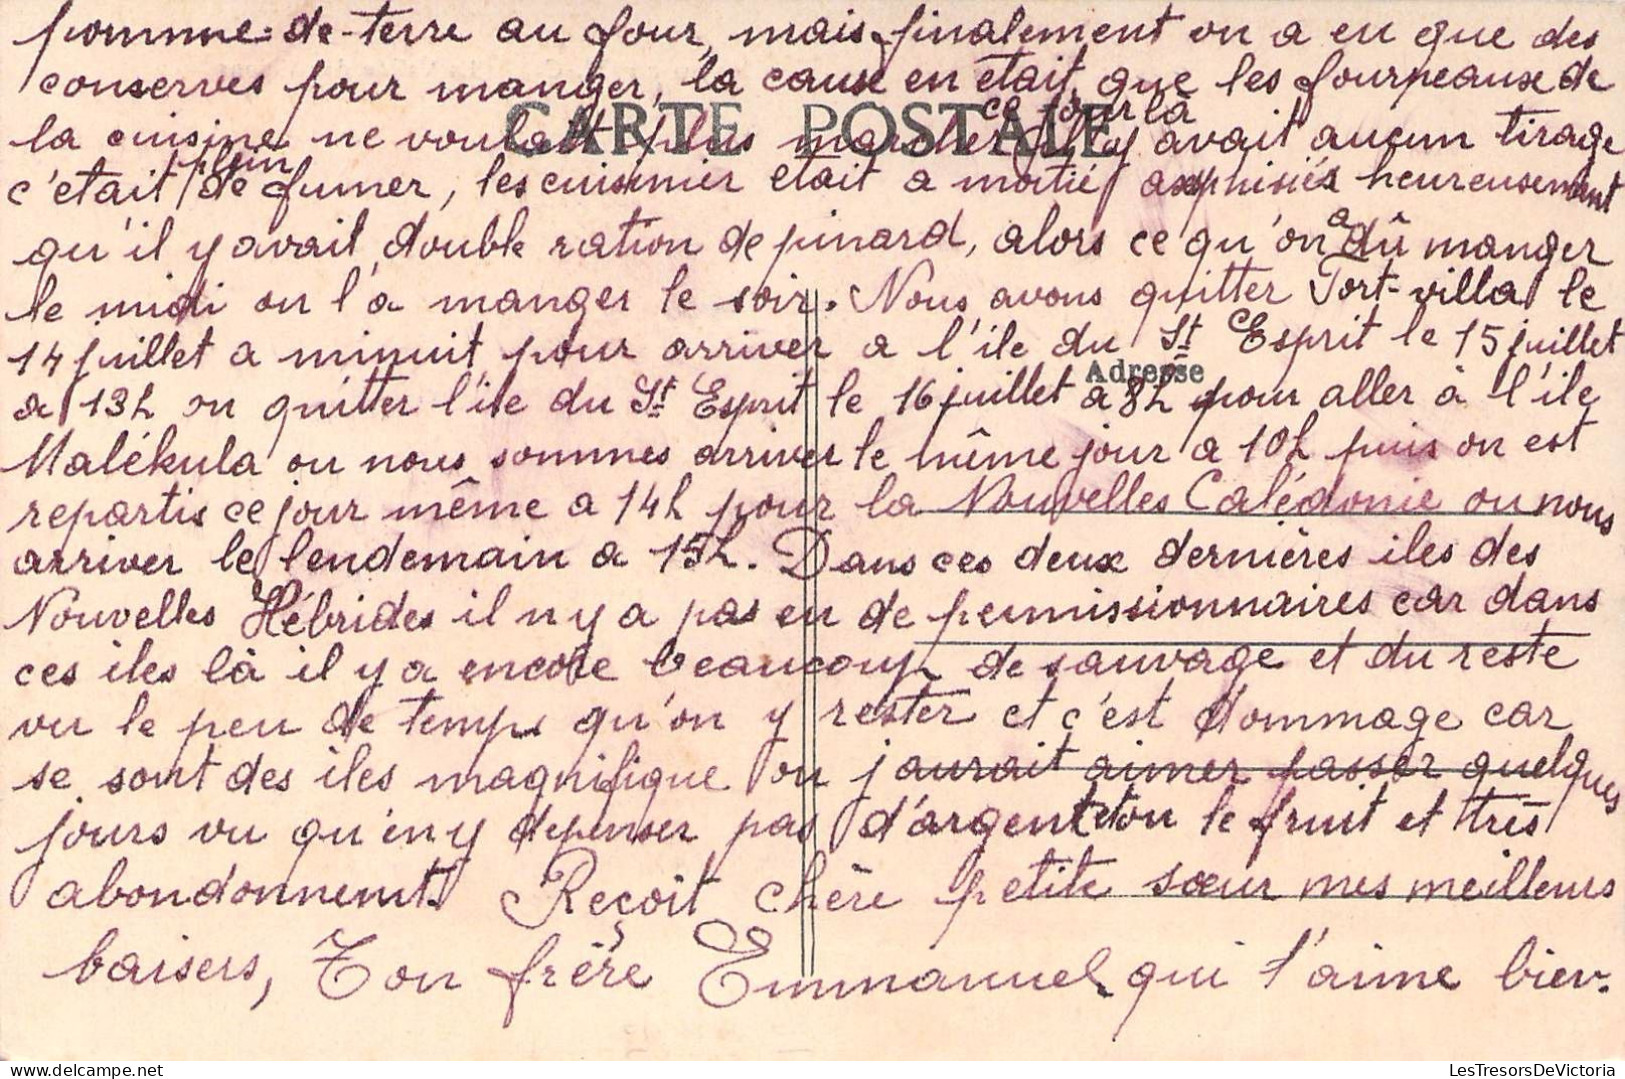 pomme-de-terre au four, mais finalement on a eu que des
conserves pour manger, la cause en était, que les fourneaux de
CARTE POSTALE
ce jour là
la cuisine ne voulait plus marcher il y avait aucun tirage
plein
c'était de fumer, les cuisinier était a moitié asphisiés heureusement
a
qu'il y avait double ration de pinard, alors ce qu'on dû manger
le midi on l'a manger le soir. Nous avons quitter Port-villa le
14 juillet a minuit pour arriver a l'ile du St Esprit le 15 juillet
Adresse
a 13h on quitter l'ile du St Esprit le 16 juillet a 8h pour aller à l'ile
Malékula ou nous sommes arriver le même jour a 10h puis on est
repartis ce jour même a 14h pour la Nouvelles Calédonie ou nous
arriver le lendemain a 15h. Dans ces deux dernières iles des
Nouvelles Hébrides il n y a pas eu de permissionnaires car dans
ces iles là il y a encore beaucoup de sauvage et du reste
vu le peu de temps qu'on y rester et c'est dommage car
se sont des iles magnifique ou j'aurait aimer passer quelques
jours vu qu'en y depenser pas d'argent et ou le fruit et très
abondonnemt. Reçoit chère petite sœur mes meilleurs
baisers, Ton frère Emmanuel qui t'aime bien.
LesTresorsDeVictoria